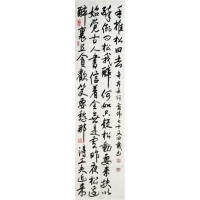 醉裏且貪歡笑要愁那得工夫近来
始覺古人書信着全無是處昨夜松邊
醉倒問松我醉何如只疑松動要来扶以
手推松曰去